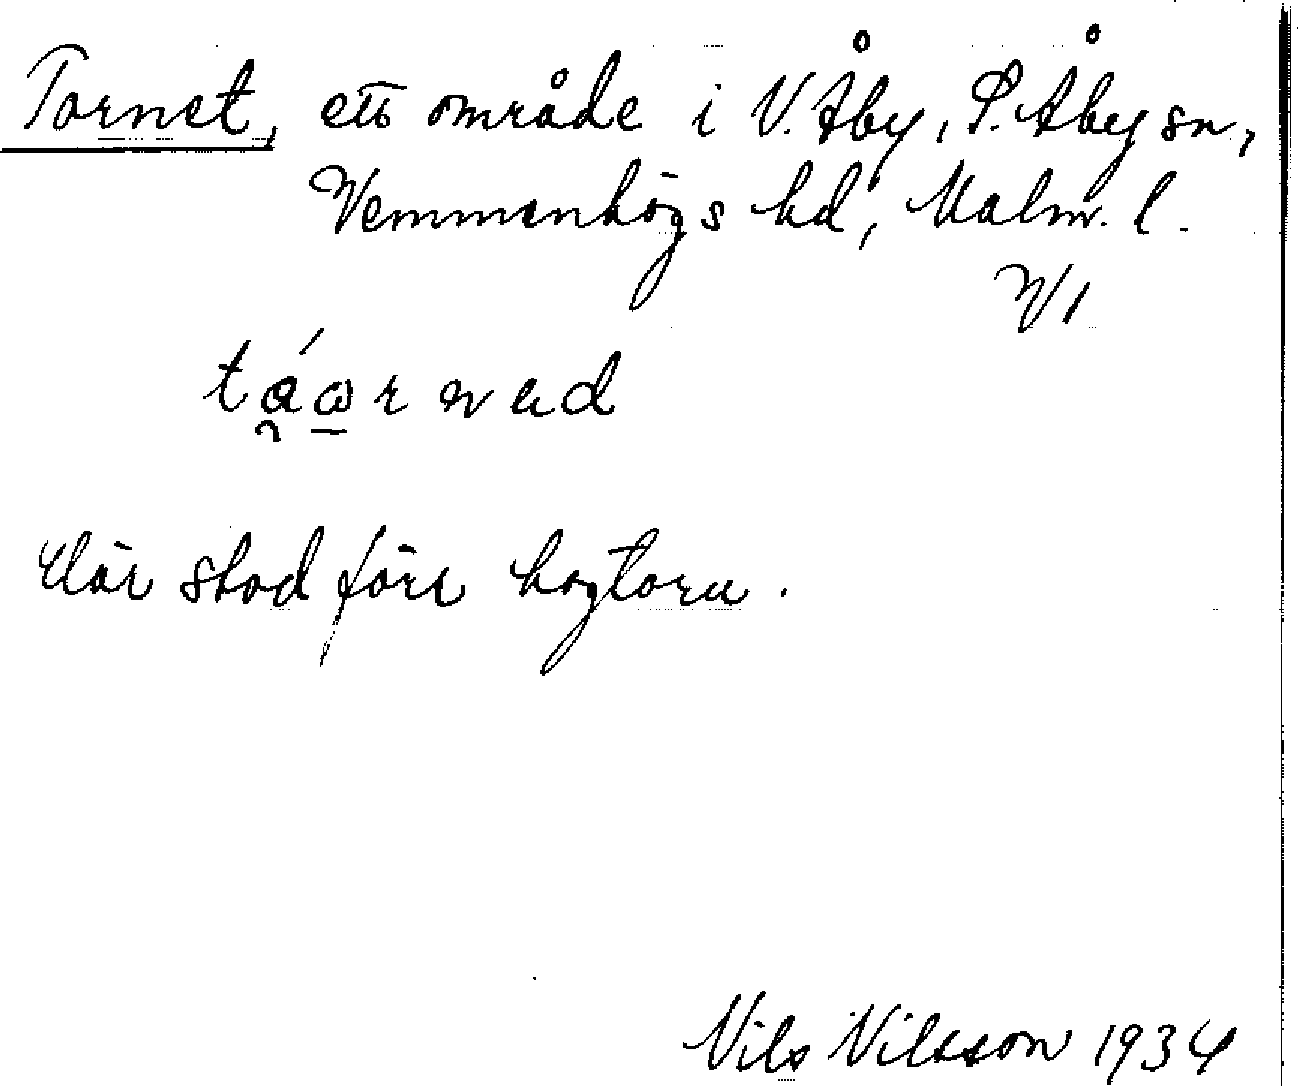 Tornet, ett område i V. Åby, S. Åby sn,
Vemmenhögs hd, Malm. l.
N1
táωrnɐd
där stod förr högtorn.
Nils Nilsson 1934